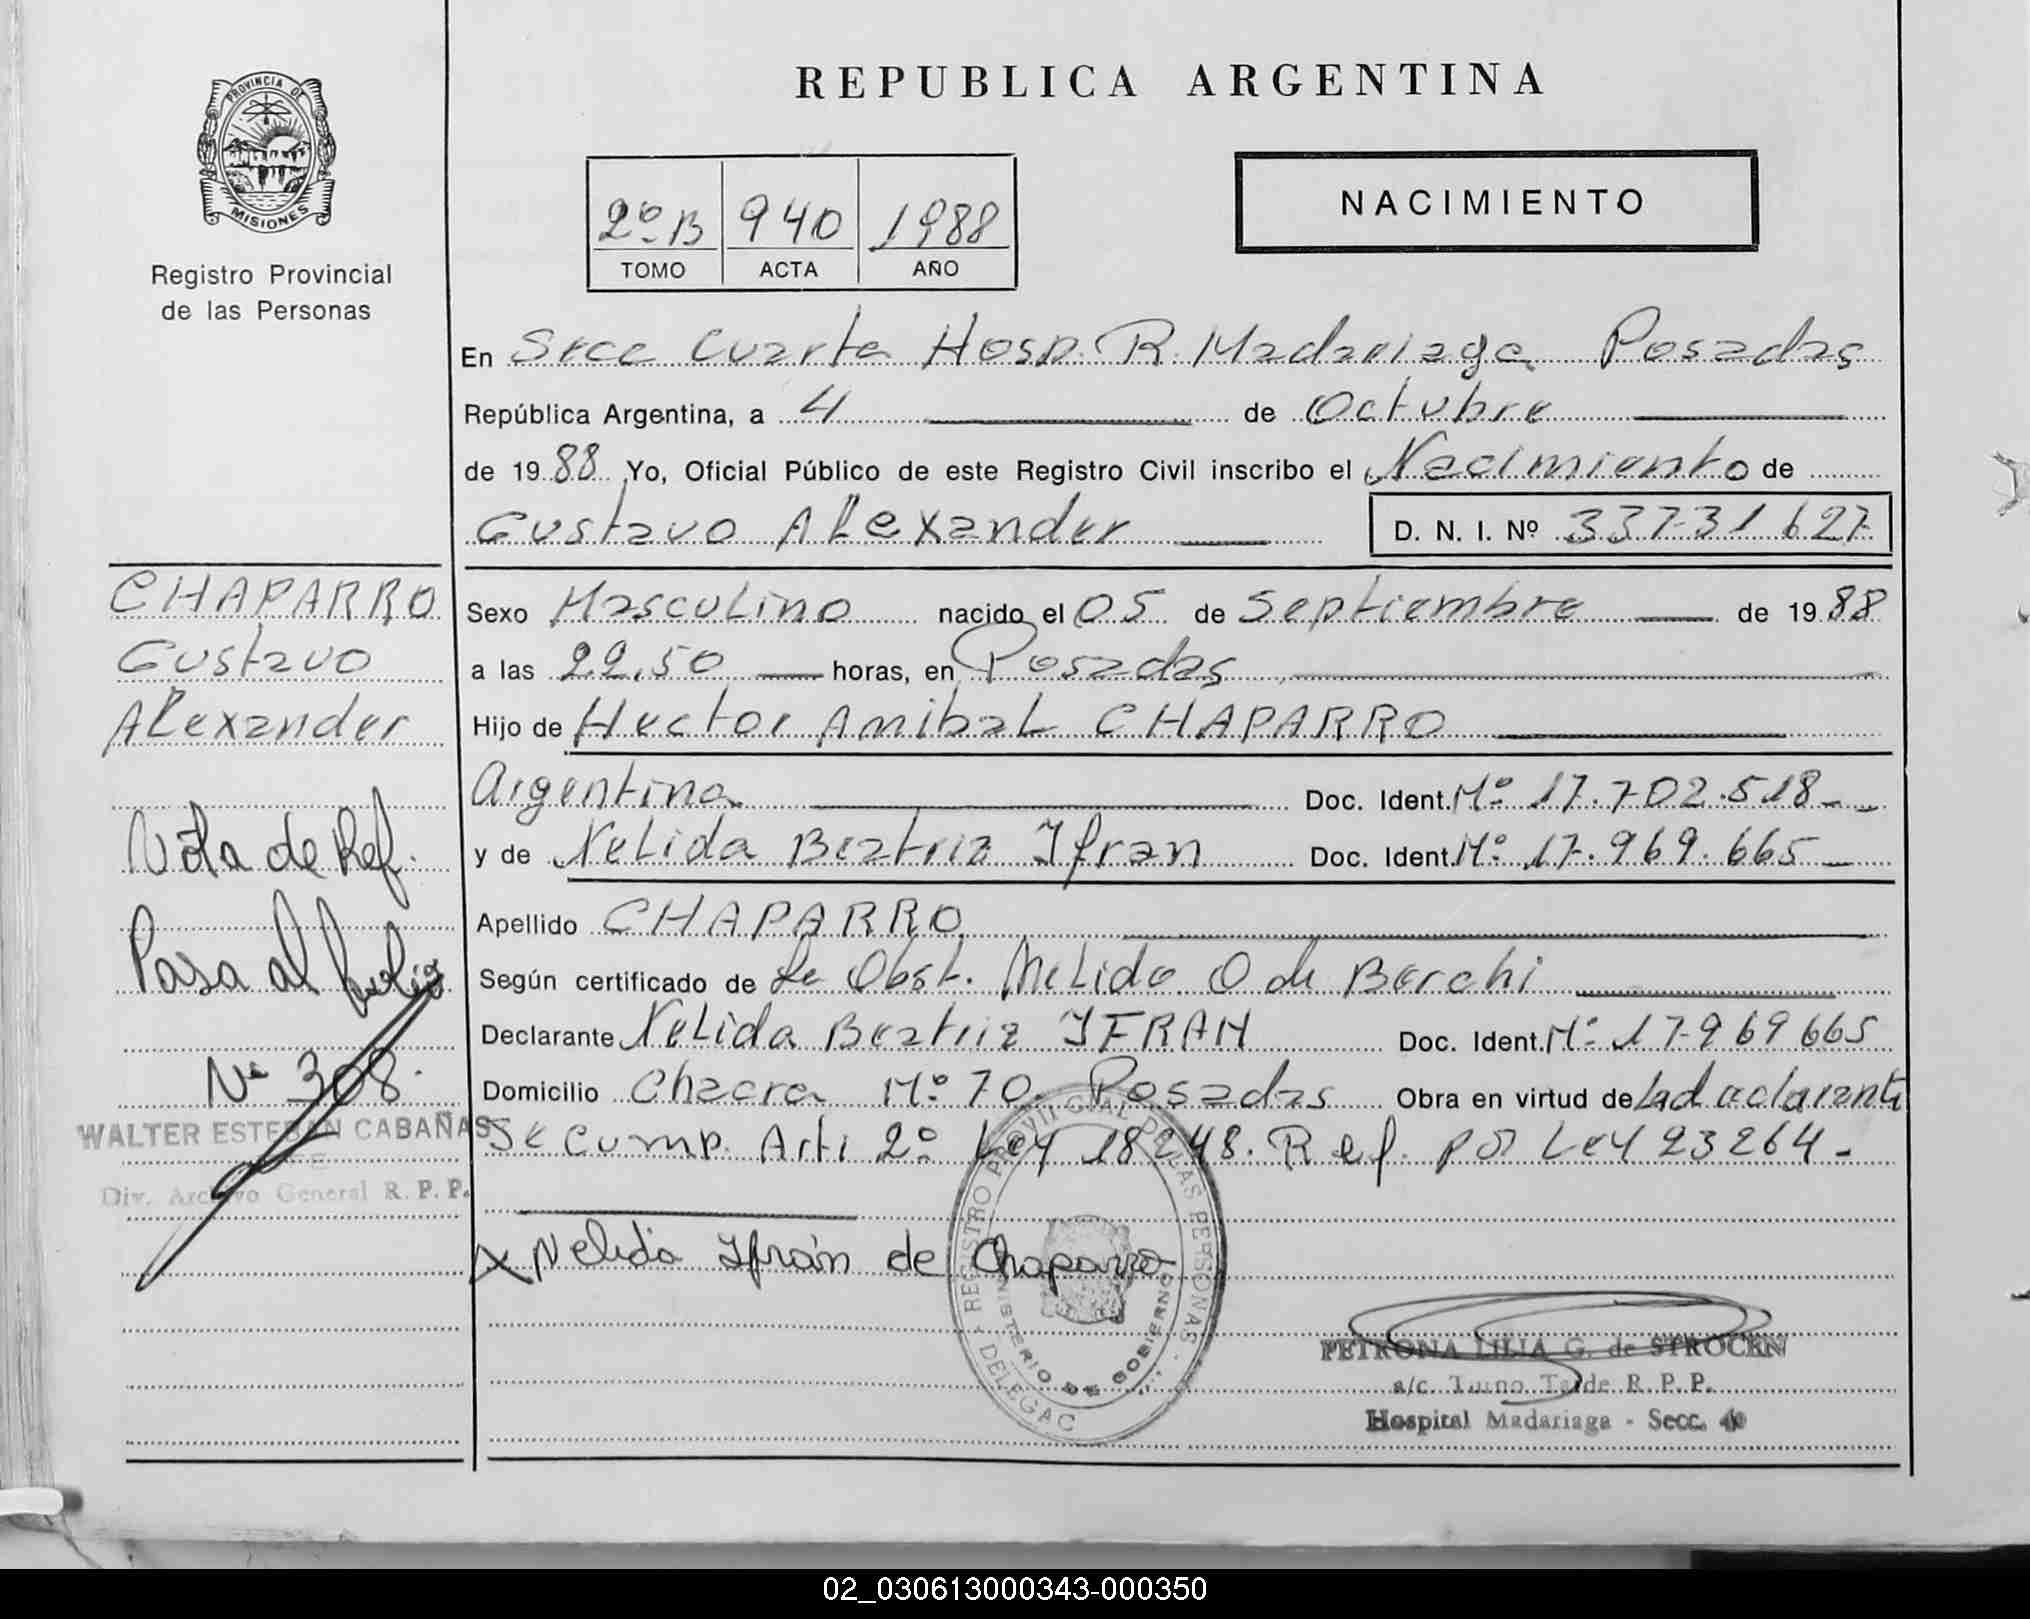 REPUBLICA ARGENTINA
PROVINCIA DE
MISIONES
Registro Provincial
de las Personas
2º B 940 1988
TOMO ACTA AÑO
NACIMIENTO
En Secc Cuarta Hosp. R. Madariaga Posadas
República Argentina, a 4 de Octubre
de 1988 Yo, Oficial Público de este Registro Civil inscribo el Nacimiento de
Gustavo Alexander D. N. I. Nº 33731627
CHAPARRO
Gustavo
Alexander
Sexo Masculino nacido el 05 de Septiembre de 1988
a las 22.50 horas, en Posadas
Hijo de Hector Anibal CHAPARRO
Argentina Doc. Ident. Nº 17.702.518-
y de Nelida Beatriz Ifran Doc. Ident. Nº 17.969.665-
Nota de Ref.
Pasa al folio
Nº 308.
WALTER ESTEBAN CABAÑAS
Div. Archivo General R. P. P.
Apellido CHAPARRO
Según certificado de la Obst. Nelida O de Berchi
Declarante Nelida Beatriz IFRAN Doc. Ident. Nº 17969665
Domicilio Chacra Nº 70 Posadas Obra en virtud de La declarante
Se cump. Arti 2º Ley 18248. Ref. por Ley 23264.-
x Nelida Ifrán de Chaparro
REGISTRO PROVINCIAL DE LAS PERSONAS
MINISTERIO DE GOBIERNO
DELEGAC
PETRONA LILIA G. de STROCEN
a/c. Turno Tarde R. P. P.
Hospital Madariaga - Secc.
02_030613000343-000350